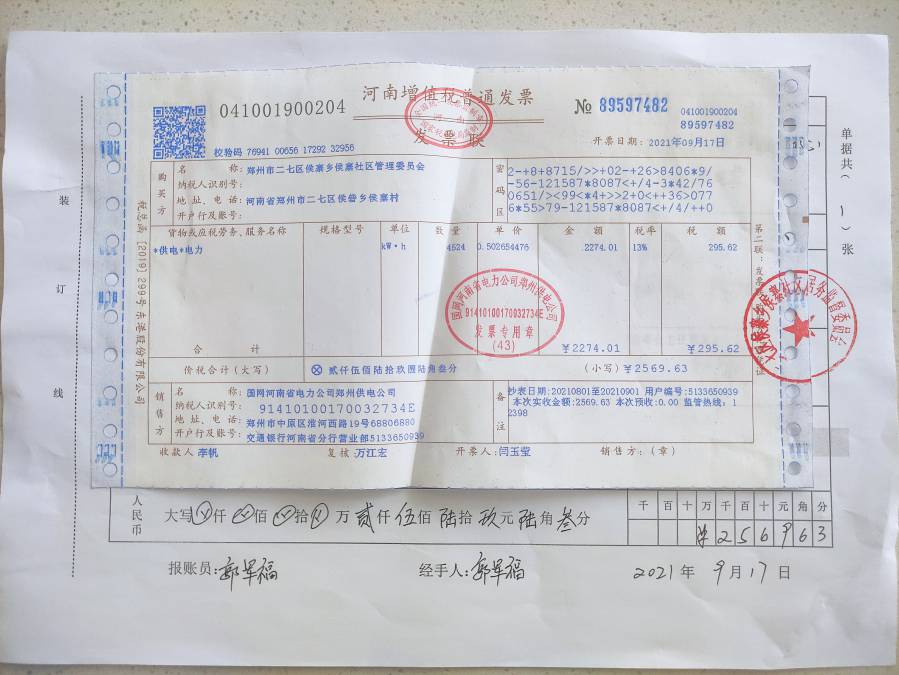 河南增值税普通发票
041001900204
发票联
№ 89597482
041001900204
89597482
校验码 76941 00656 17292 32956
开票日期: 2021年09月17日
购买方
名 称: 郑州市二七区侯寨乡侯寨社区管理委员会
纳税人识别号:
地址、电话: 河南省郑州市二七区侯寨乡侯寨村
开户行及账号:
密码区
2-+8+8715/>>+02-+26>8406*9/
-56-121587*8087<+/4-3*42/76
0651/<99<*4+>>2+0<++36>077
6*55>79-121587*8087<+/4/++0
货物或应税劳务、服务名称 规格型号 单位 数量 单价 金额 税率 税额
*供电*电力 kW·h 4524 0.502654476 2274.01 13% 295.62
国网河南省电力公司郑州供电公司
91410100170032734E
发票专用章
(43)
合 计 ¥2274.01 ¥295.62
价税合计(大写) ⊗ 贰仟伍佰陆拾玖圆陆角叁分 (小写) ¥2569.63
销售方
名 称: 国网河南省电力公司郑州供电公司
纳税人识别号: 91410100170032734E
地址、电话: 郑州市中原区淮河西路19号68806880
开户行及账号: 交通银行河南省分行营业部5133650939
备注
抄表日期:20210801至20210901 用户编号:5133650939
本次实收金额:2569.63 本次预收:0.00 监管热线:1
2398
收款人 李帆 复核: 万江宏 开票人: 闫玉莹 销售方:(章)
税总函[2019]299号东港股份有限公司
第二联:发票
装
订
线
单据共(1)张
人民币
大写 仟 佰 拾 万 贰仟 伍佰 陆拾 玖元 陆角 叁分
千 百 十 万 千 百 十 元 角 分
2 5 6 9 6 3
报账员: 郭军福 经手人: 郭军福 2021年 9月17日